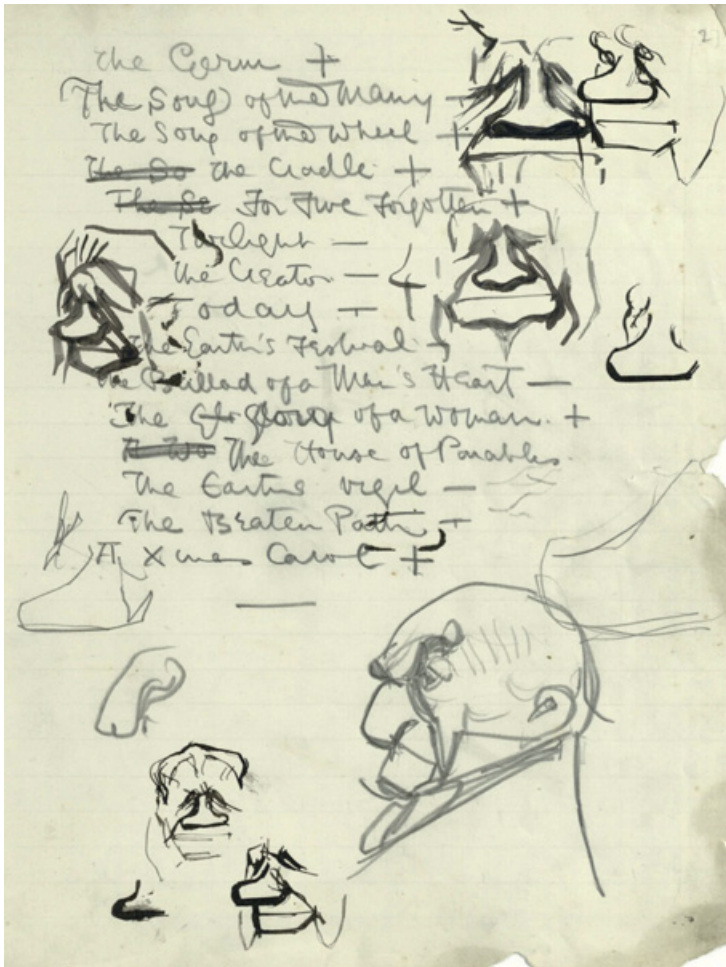 2
The Germ +
(The Song) of the Many +
The Song of the Wheel +
The So The Cradle +
The So For Five Forgotten +
Twilight —
The Creator — +
Today — +
The Earth's Festival +
The Ballad of a Man's Heart —
The Glory of a Woman. +
The House of Parables
The Earth's Vigil —
The Beaten Path +
A Xmas Carol +